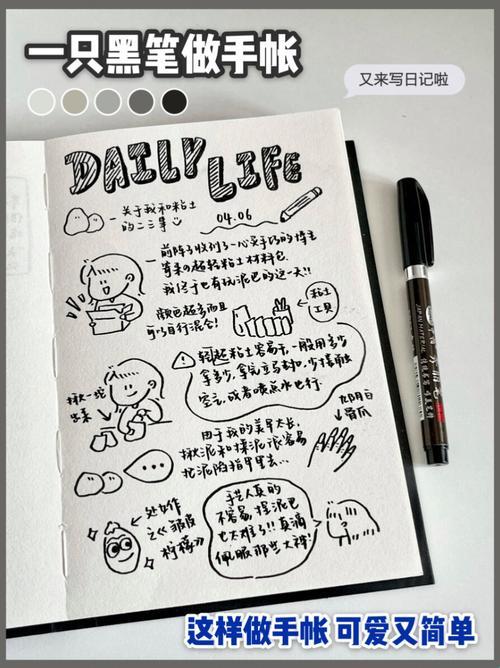 一只黑笔做手帐
又来写日记啦
DAILY LIFE
— 关于我和粘土
的二三事
04.06
— 前阵子收到了一心买手巧的博主
寄来の超轻粘土材料包
我终于也有玩泥巴的这一天!!
颜色超多而且
可以自行混合!
粘土
工具
轻超粘土容易干,一般用多少
拿多少,拿完立马封口,少接触
空气,或者喷点水也行.
揪一坨
出来
由于我的美甲太长,
揪泥和揉泥很容易
把泥陷指甲里去...
九阴白
骨爪
处女作
之<<皱皮
柠檬>>
手艺人真的
不容易,捏泥巴
也太难了!!真滴
佩服那些大神!
JAPAN MATERIAL
这样做手帐 可爱又简单